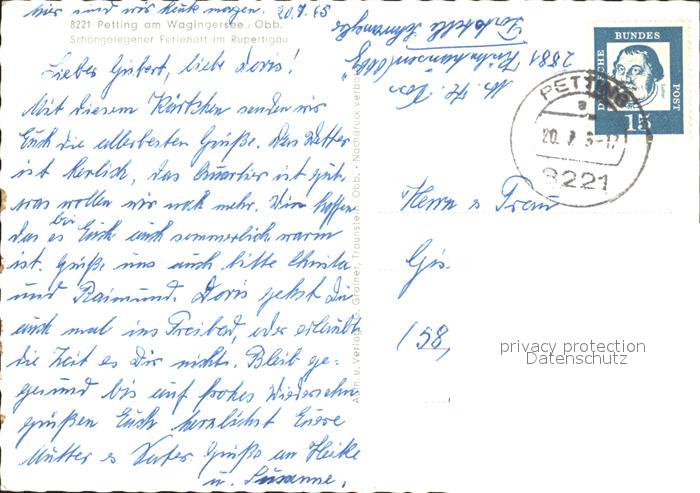 hier und wir heute morgen. 20.7.65
8221 Petting am Wagingersee / Obb.
Schöngelegener Ferienort im Rupertigau
Lieber Gisbert, liebe Doris!
Mit diesem Kärtchen senden wir
Euch die allerbesten Grüße. Das Wetter
ist herlich, das Quartier ist gut,
was wollen wir noch mehr. Wir hoffen
das es bei Euch auch sommerlich warm
ist. Grüße uns auch bitte Christa
und Raimund. Doris gehst Du
auch mal ins Freibad, oder erlaubt
die Zeit es Dir nicht. Bleib ge-
gesund bis auf frohes Wiedersehn
grüßen Euch herzlichst Eure
Mutter u Vater Grüße an Heike
u. Susanne.
2881
Nachdruck verboten
Grainer, Traunstein / Obb.
DEUTSCHE BUNDESPOST
Luther
15
PETTING
a
20. 7. 6 -17
8221
Herrn u Frau
Gis
(58
privacy protection
Datenschutz